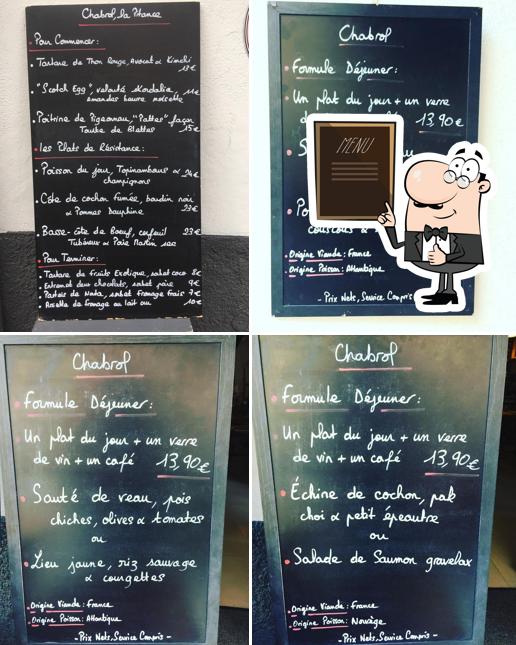 Chabrol, la Pitance
Pour Commencer:
Tartare de Thon Rouge, avocat & Kimchi
13€
"Scotch Egg", velouté d'andalie, 11€
amandes beurre noisette
Poitrine de Pigeonneau, "Pattes" façon
Tourte de Blettes 15€
Les Plats de Résistance:
Poisson du jour, Topinambours & 24€
champignons
Côte de cochon fumée, boudin noir 23€
& Pommes Dauphine
Basse-côte de Boeuf, cerfeuil 23€
Tubéreux & Poire Martin sec
Pour Terminer:
Tartare de fruits Exotique, sorbet coco 8€
Entremet deux chocolats, sorbet poire 9€
Pasteis de Nata, sorbet fromage frais 7€
Assiette de fromage au lait cru 10€
Chabrol
Formule Déjeuner:
Un plat du jour + un verre
13,90€
MENU
couscous &
Origine Viande: France
Origine Poisson: Atlantique
- Prix Nets, Service Compris
Chabrol
Formule Déjeuner:
Un plat du jour + un verre
de vin + un café 13,90€
Sauté de veau, pois
chiches, olives & tomates
ou
Lieu jaune, riz sauvage
& courgettes
Origine Viande: France
Origine Poisson: Atlantique
- Prix Nets, Service Compris -
Chabrol
Formule Déjeuner:
Un plat du jour + un verre
de vin + un café 13,90€
Échine de cochon, pak
choi & petit épeautre
ou
Salade de Saumon gravelax
Origine Viande: France
Origine Poisson: Norvège
- Prix Nets, Service Compris -